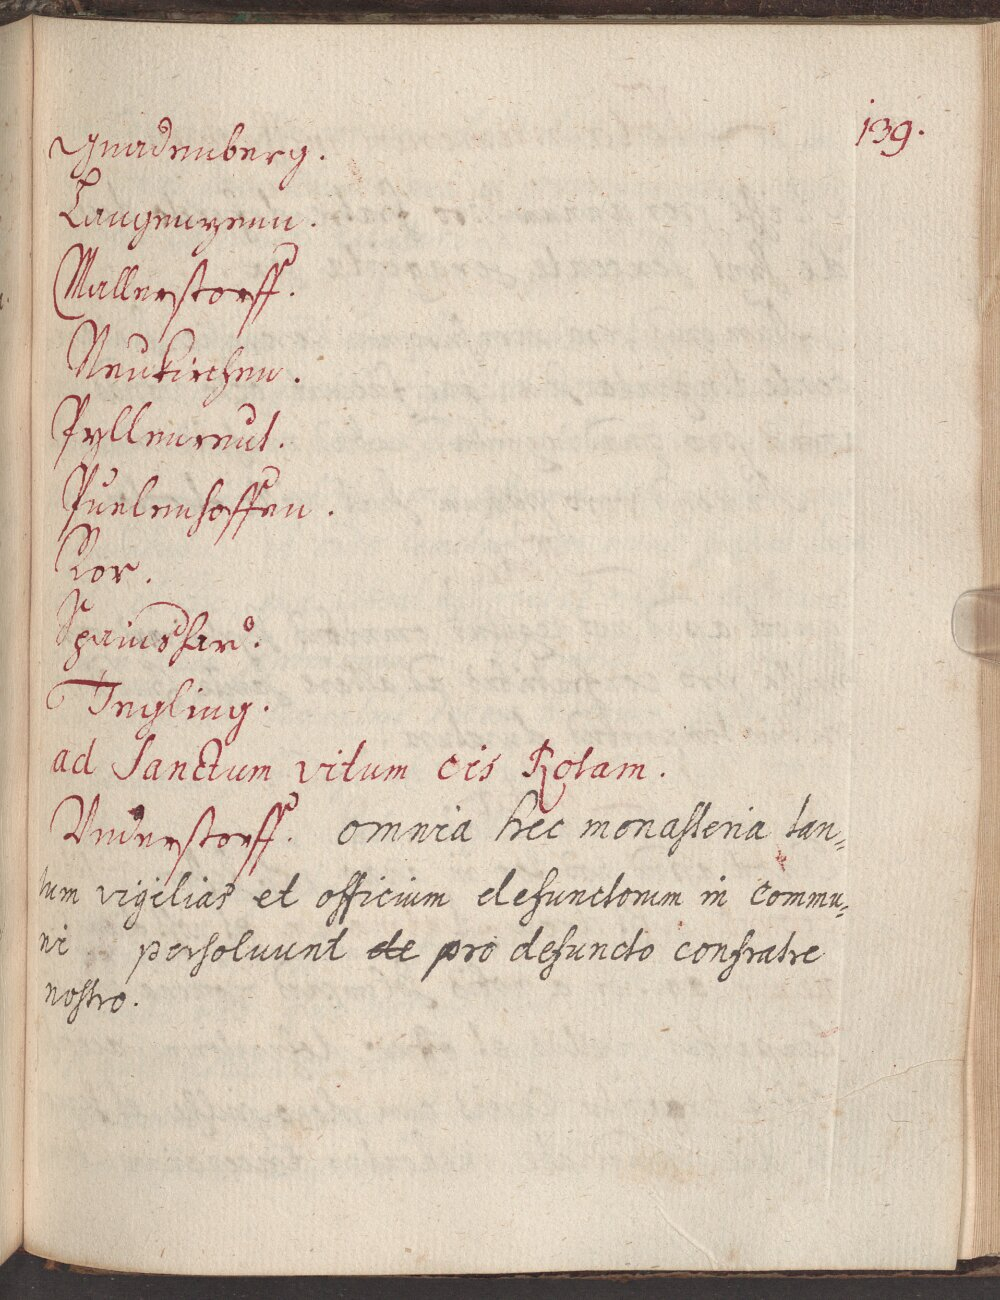 139.
Gnadenberg.
Langenzenn.
Mallerstorff.
Neukirchen.
Pyllenreut.
Puelenhoffen.
Ror.
Spainshard.
Tegling.
ad Sanctum vitum cis Rotam.
Vnderstorff. omnia hec monasteria tan„
tum vigilias et officium defunctorum in commu„
ni persoluunt de pro defuncto confratre
nostro.